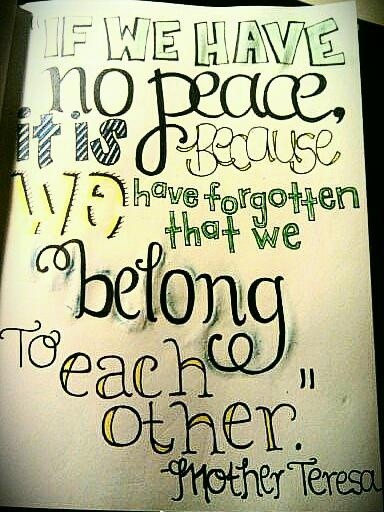 "IF WE HAVE
no peace,
it is Because
WE have forgotten
that we
belong
TO each
other."
-Mother Teresa